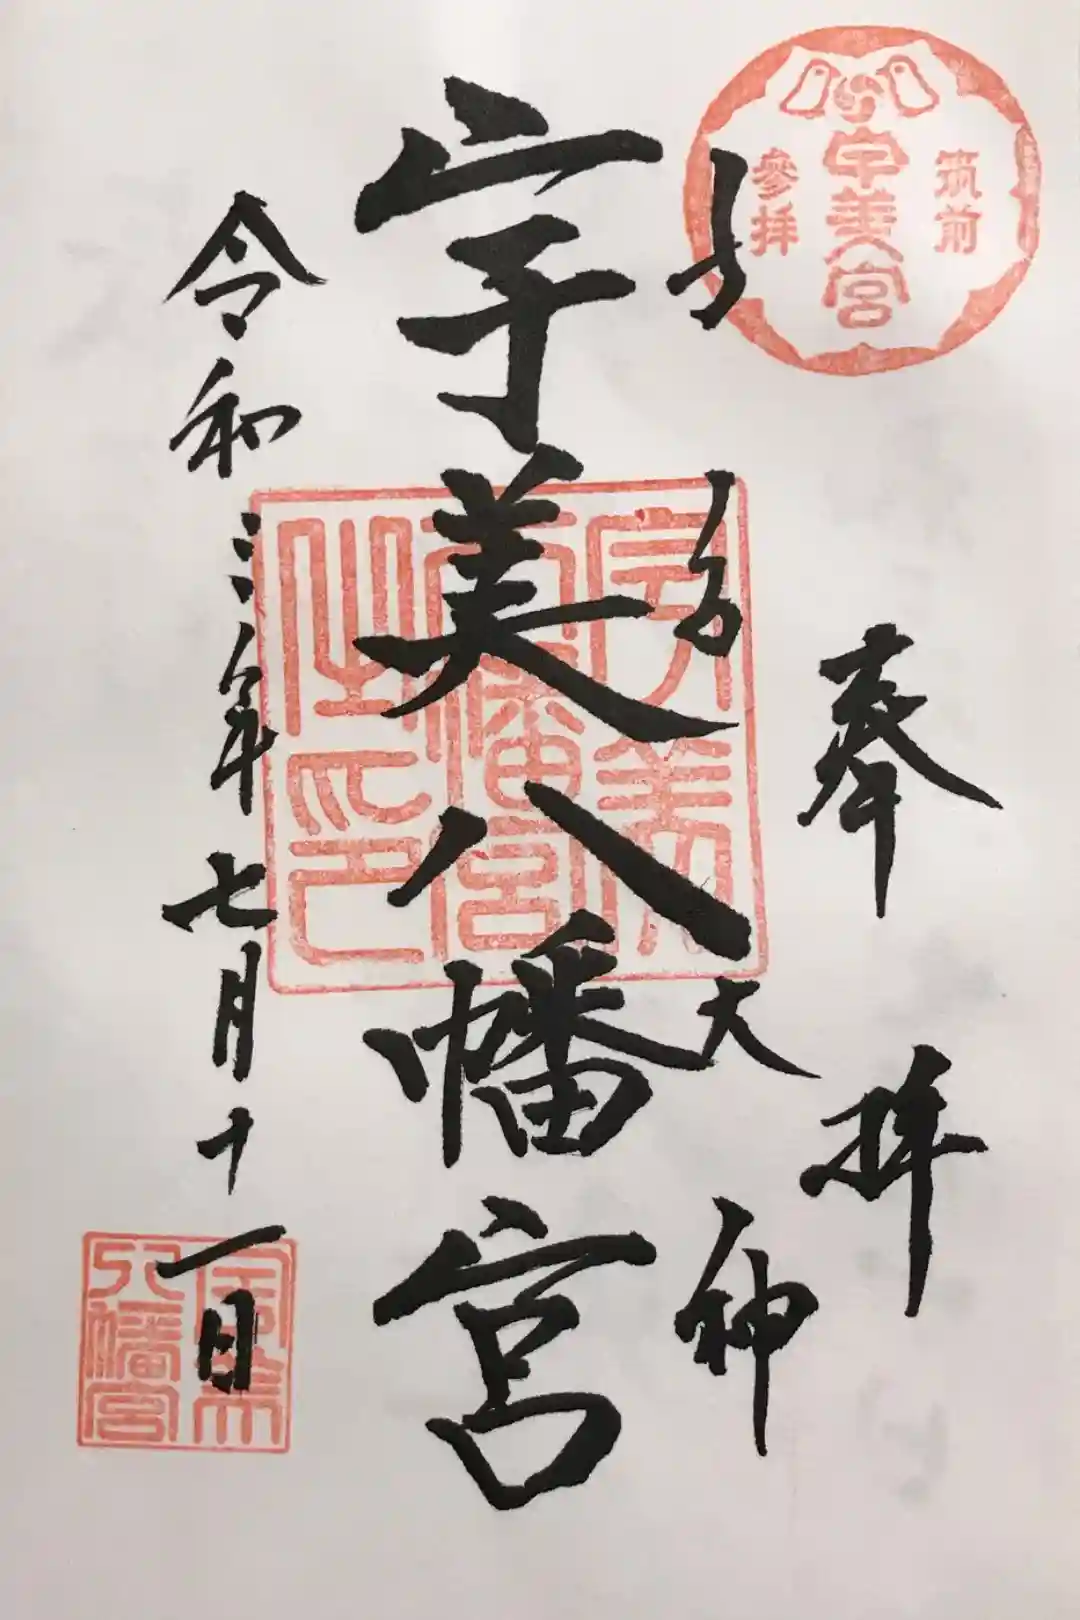 筑前
宇美宮
參拝
奉拝
大神
宇美八幡宮
令和三年七月十一日
宇美
八幡宮
之印
宇美
八幡宮